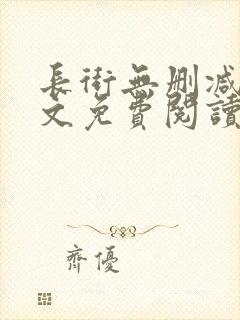 長街無刪減
文免費閱讀
齊優